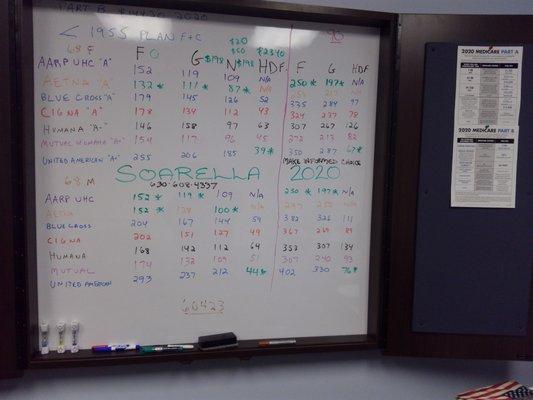 PART B 2020
< 1955 PLAN F+C
$20
$50 $2340
90
68 F
F G $198 N $198 HDF F G HDF
AARP UHC "A" 152 119 109 N/A
AETNA "A" 132 * 111 * 87 * N/A 250 * 197 * N/A
BLUE CROSS "A" 179 145 126 52 335 284 97
CIGNA "A" 178 134 112 43 324 237 78
HUMANA "A-" 146 158 97 63 307 267 126
MUTUAL OMAHA "A" 154 117 96 45 272 213 82
UNITED AMERICAN "A" 255 206 185 39 * 350 287 67 *
MAKE INFORMED CHOICE
SOARELLA 2020
68 M 630-608-4337
AARP UHC 152 * 119 * 109 N/A 250 * 197 * N/A
AETNA 152 * 128 100 * N/A
BLUE CROSS 204 167 144 59 382 325 111
CIGNA 202 151 127 49 367 269 89
HUMANA 168 142 112 64 353 307 134
MUTUAL 174 132 109 51 307 240 93
UNITED AMERICAN 293 237 212 44 * 402 330 76 *
60423
2020 MEDICARE PART A
2020 MEDICARE PART B